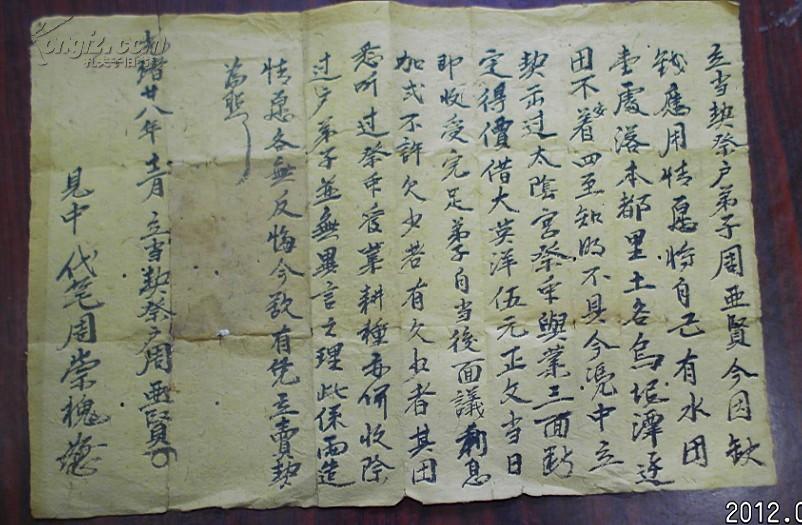 立当契祭户弟子周亜賢今因缺
錢應用情愿将自己有水田
壹處落本都里土名烏垞潭逕
田不着四至知明不具今凴中立
契示过太陰宮祭田與業三面断
定得價借大英洋伍元正文当日
即收受完足弟子自当後面議利息
加弍不許欠少若有欠少者其田
悉听过祭爷管業耕種五併收除
过户弟子並無異言之理此係両造
情愿各無反悔今欲有凭立賣契
為照
光緒廿八年十二月立当契祭户周亜賢
見中代笔周崇槐
kongfz.com
孔夫子旧书网
2012.0